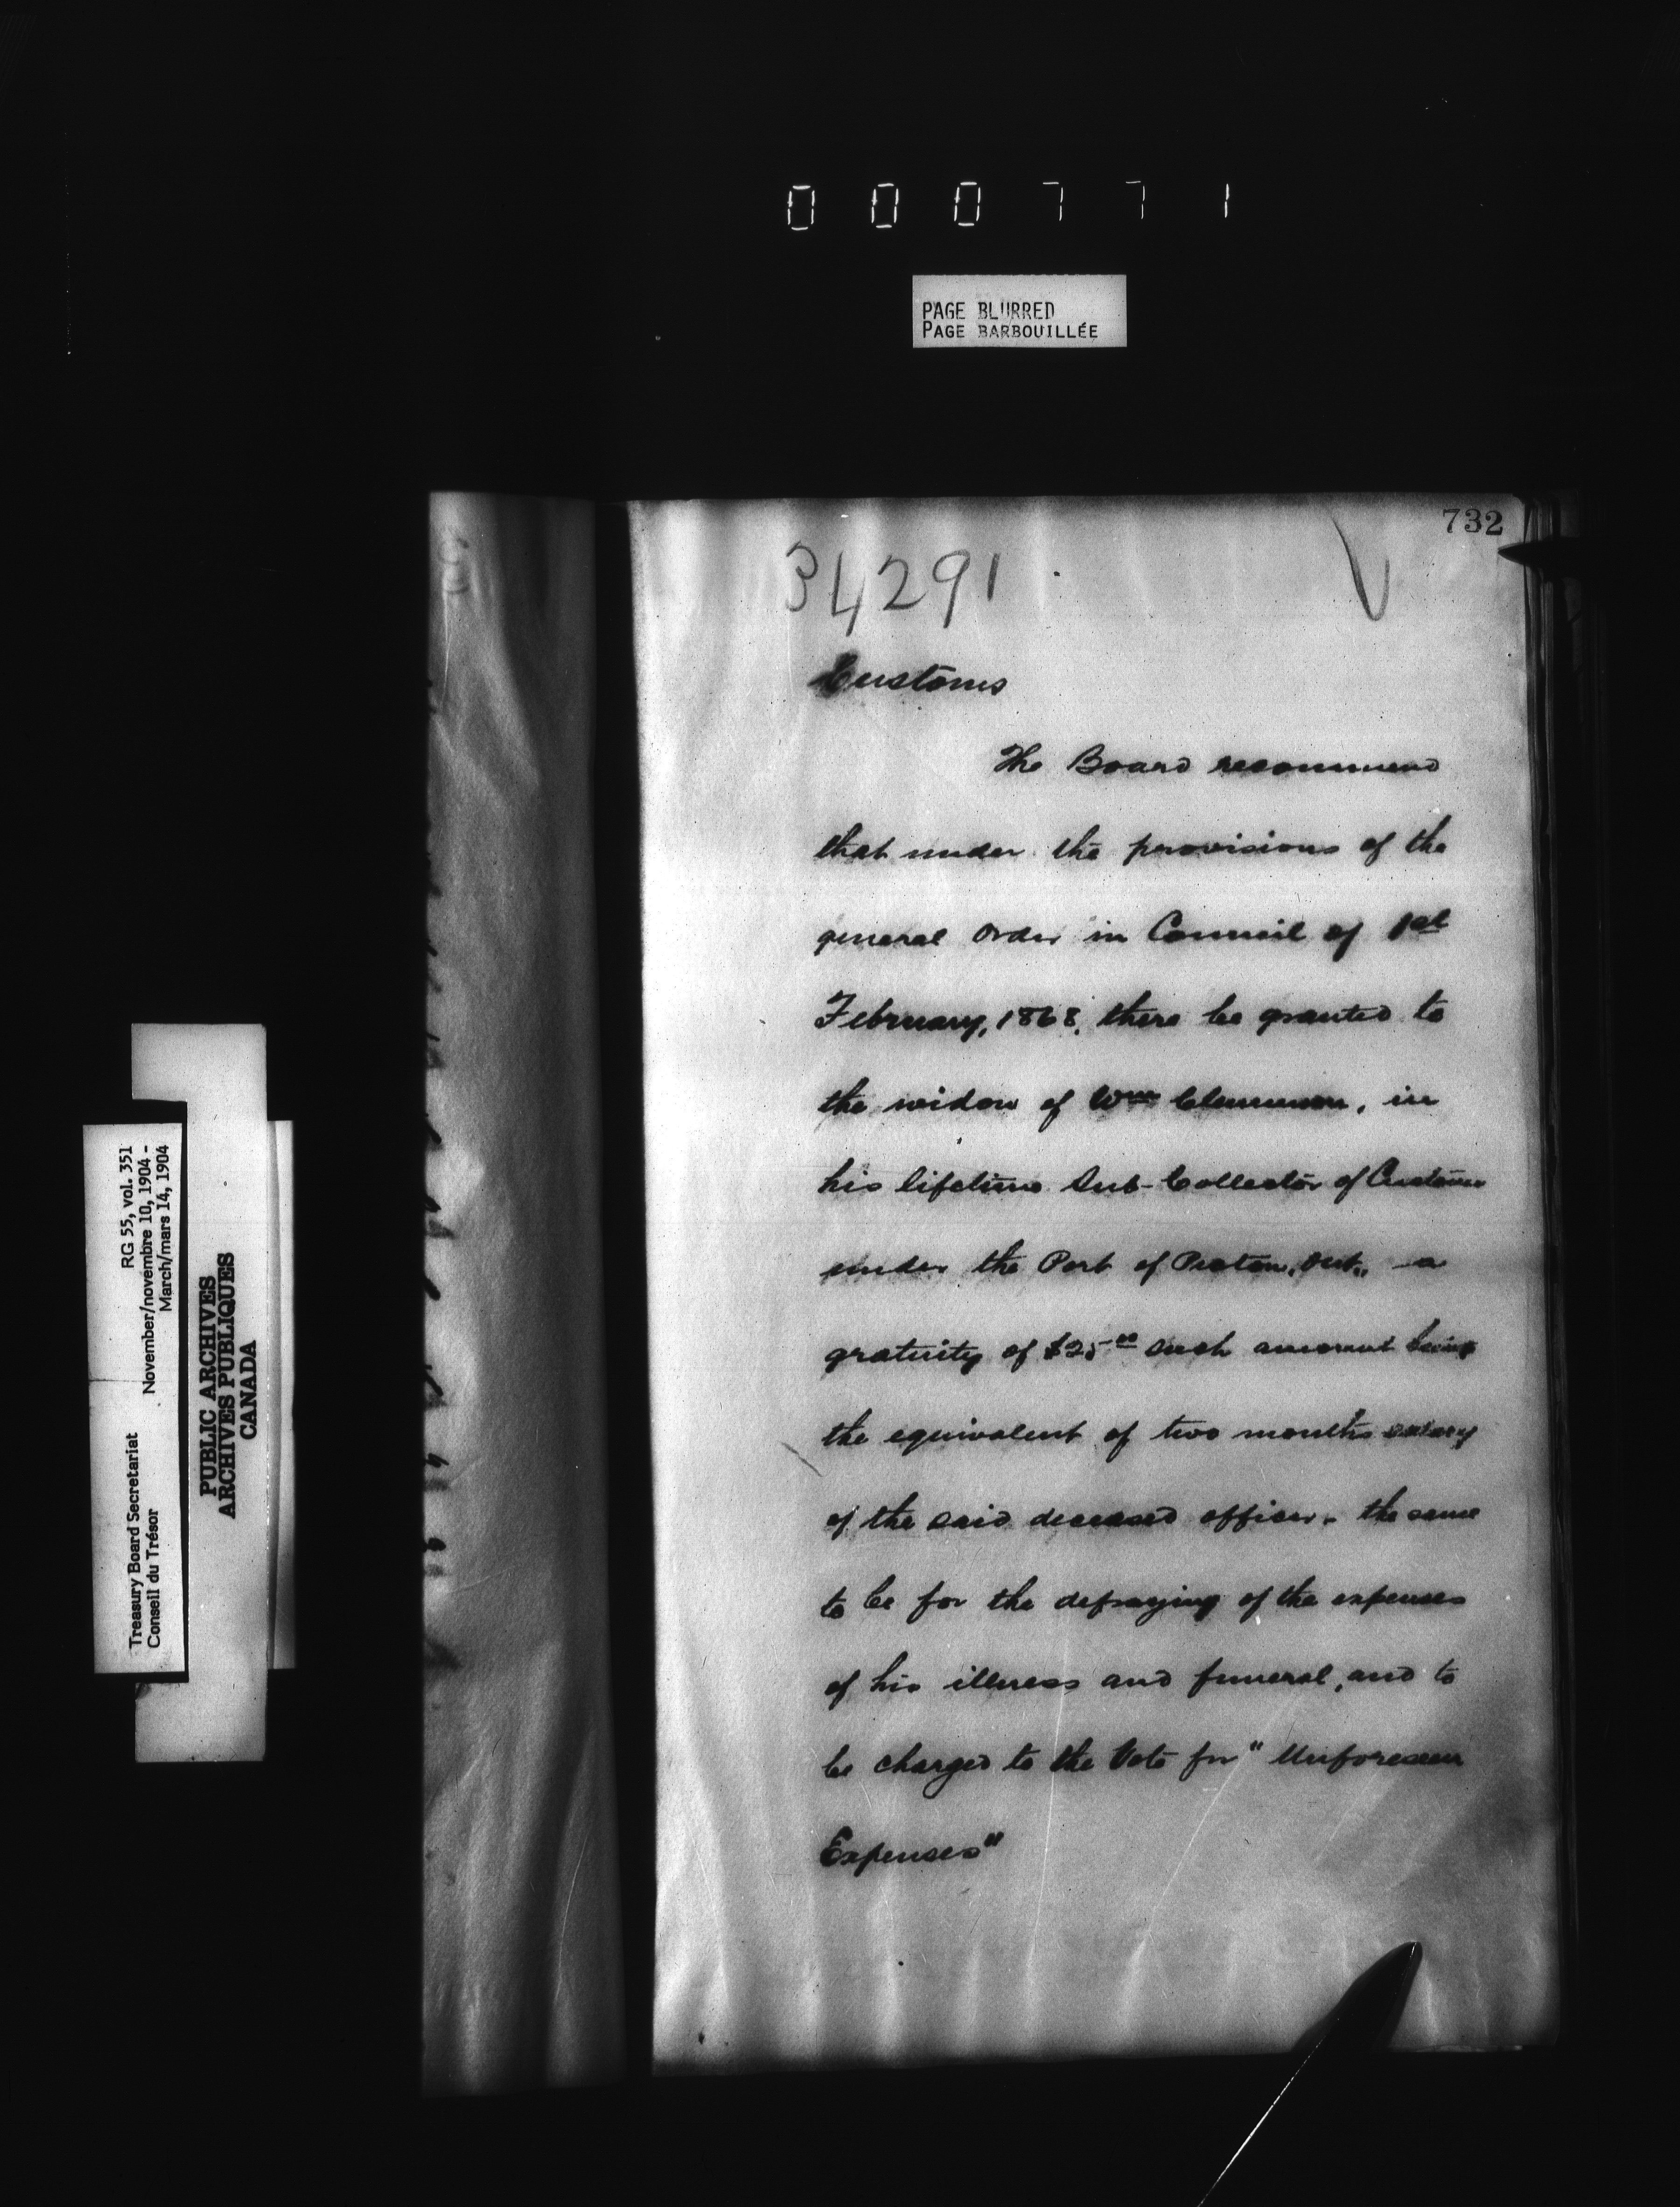 000771
PAGE BLURRED
PAGE BARBOUILLÉE
732
34291
Customs
The Board recommend
that under the provisions of the
general Order in Council of 1st
February, 1868, there be granted to
the widow of Wm , in
his lifetime Sub-Collector of Customs
under the Port of Ont., a
gratuity of $25.00 such amount being
the equivalent of two month's salary
of the said deceased officer, the same
to be for the defraying of the expenses
of his illness and funeral, and to
be charged to the Vote for "Unforeseen
Expenses"
Treasury Board Secretariat RG 55, vol. 351
Conseil du Trésor November/novembre 10, 1904 -
March/mars 14, 1904
PUBLIC ARCHIVES
ARCHIVES PUBLIQUES
CANADA